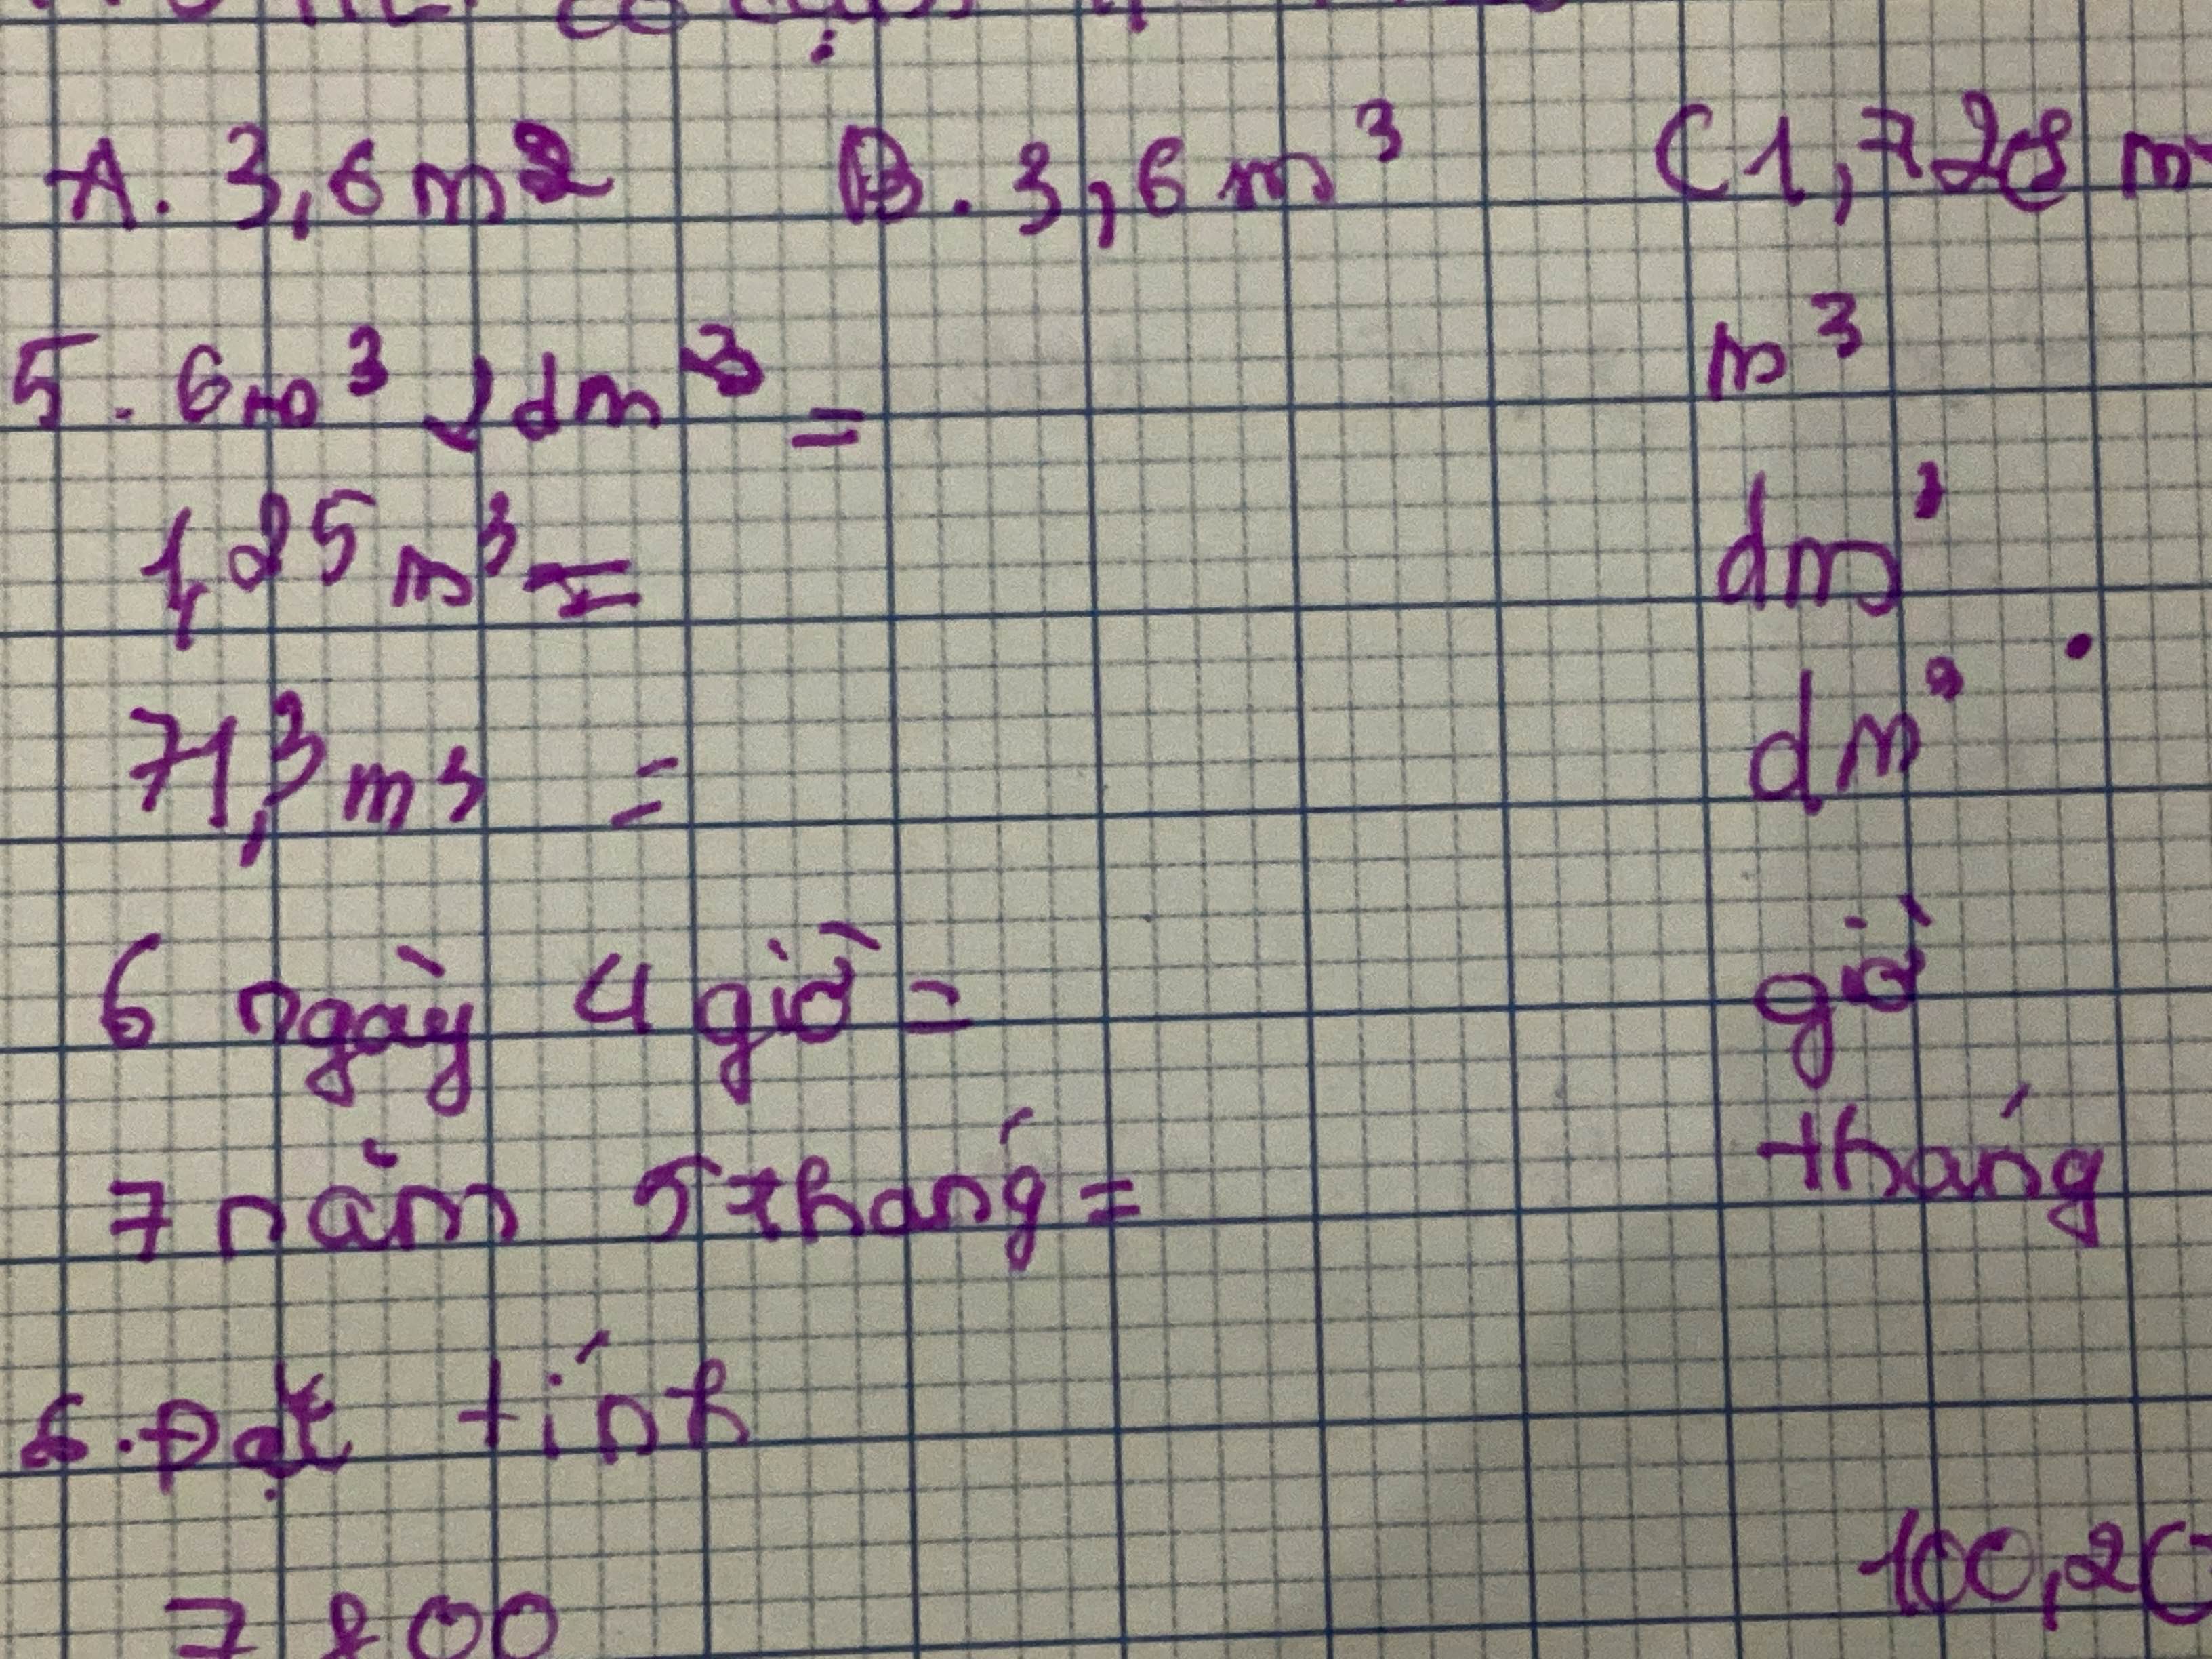 A. 3,6 m² B. 3,6 m³ C 1,728 m
5. 6m³ 2dm³ = m³
1,25 m³ = dm³
71,3 m³ = dm³.
6 ngày 4 giờ = giờ
7 năm 5 tháng = tháng
6. Đặt tính
7 800 100,20